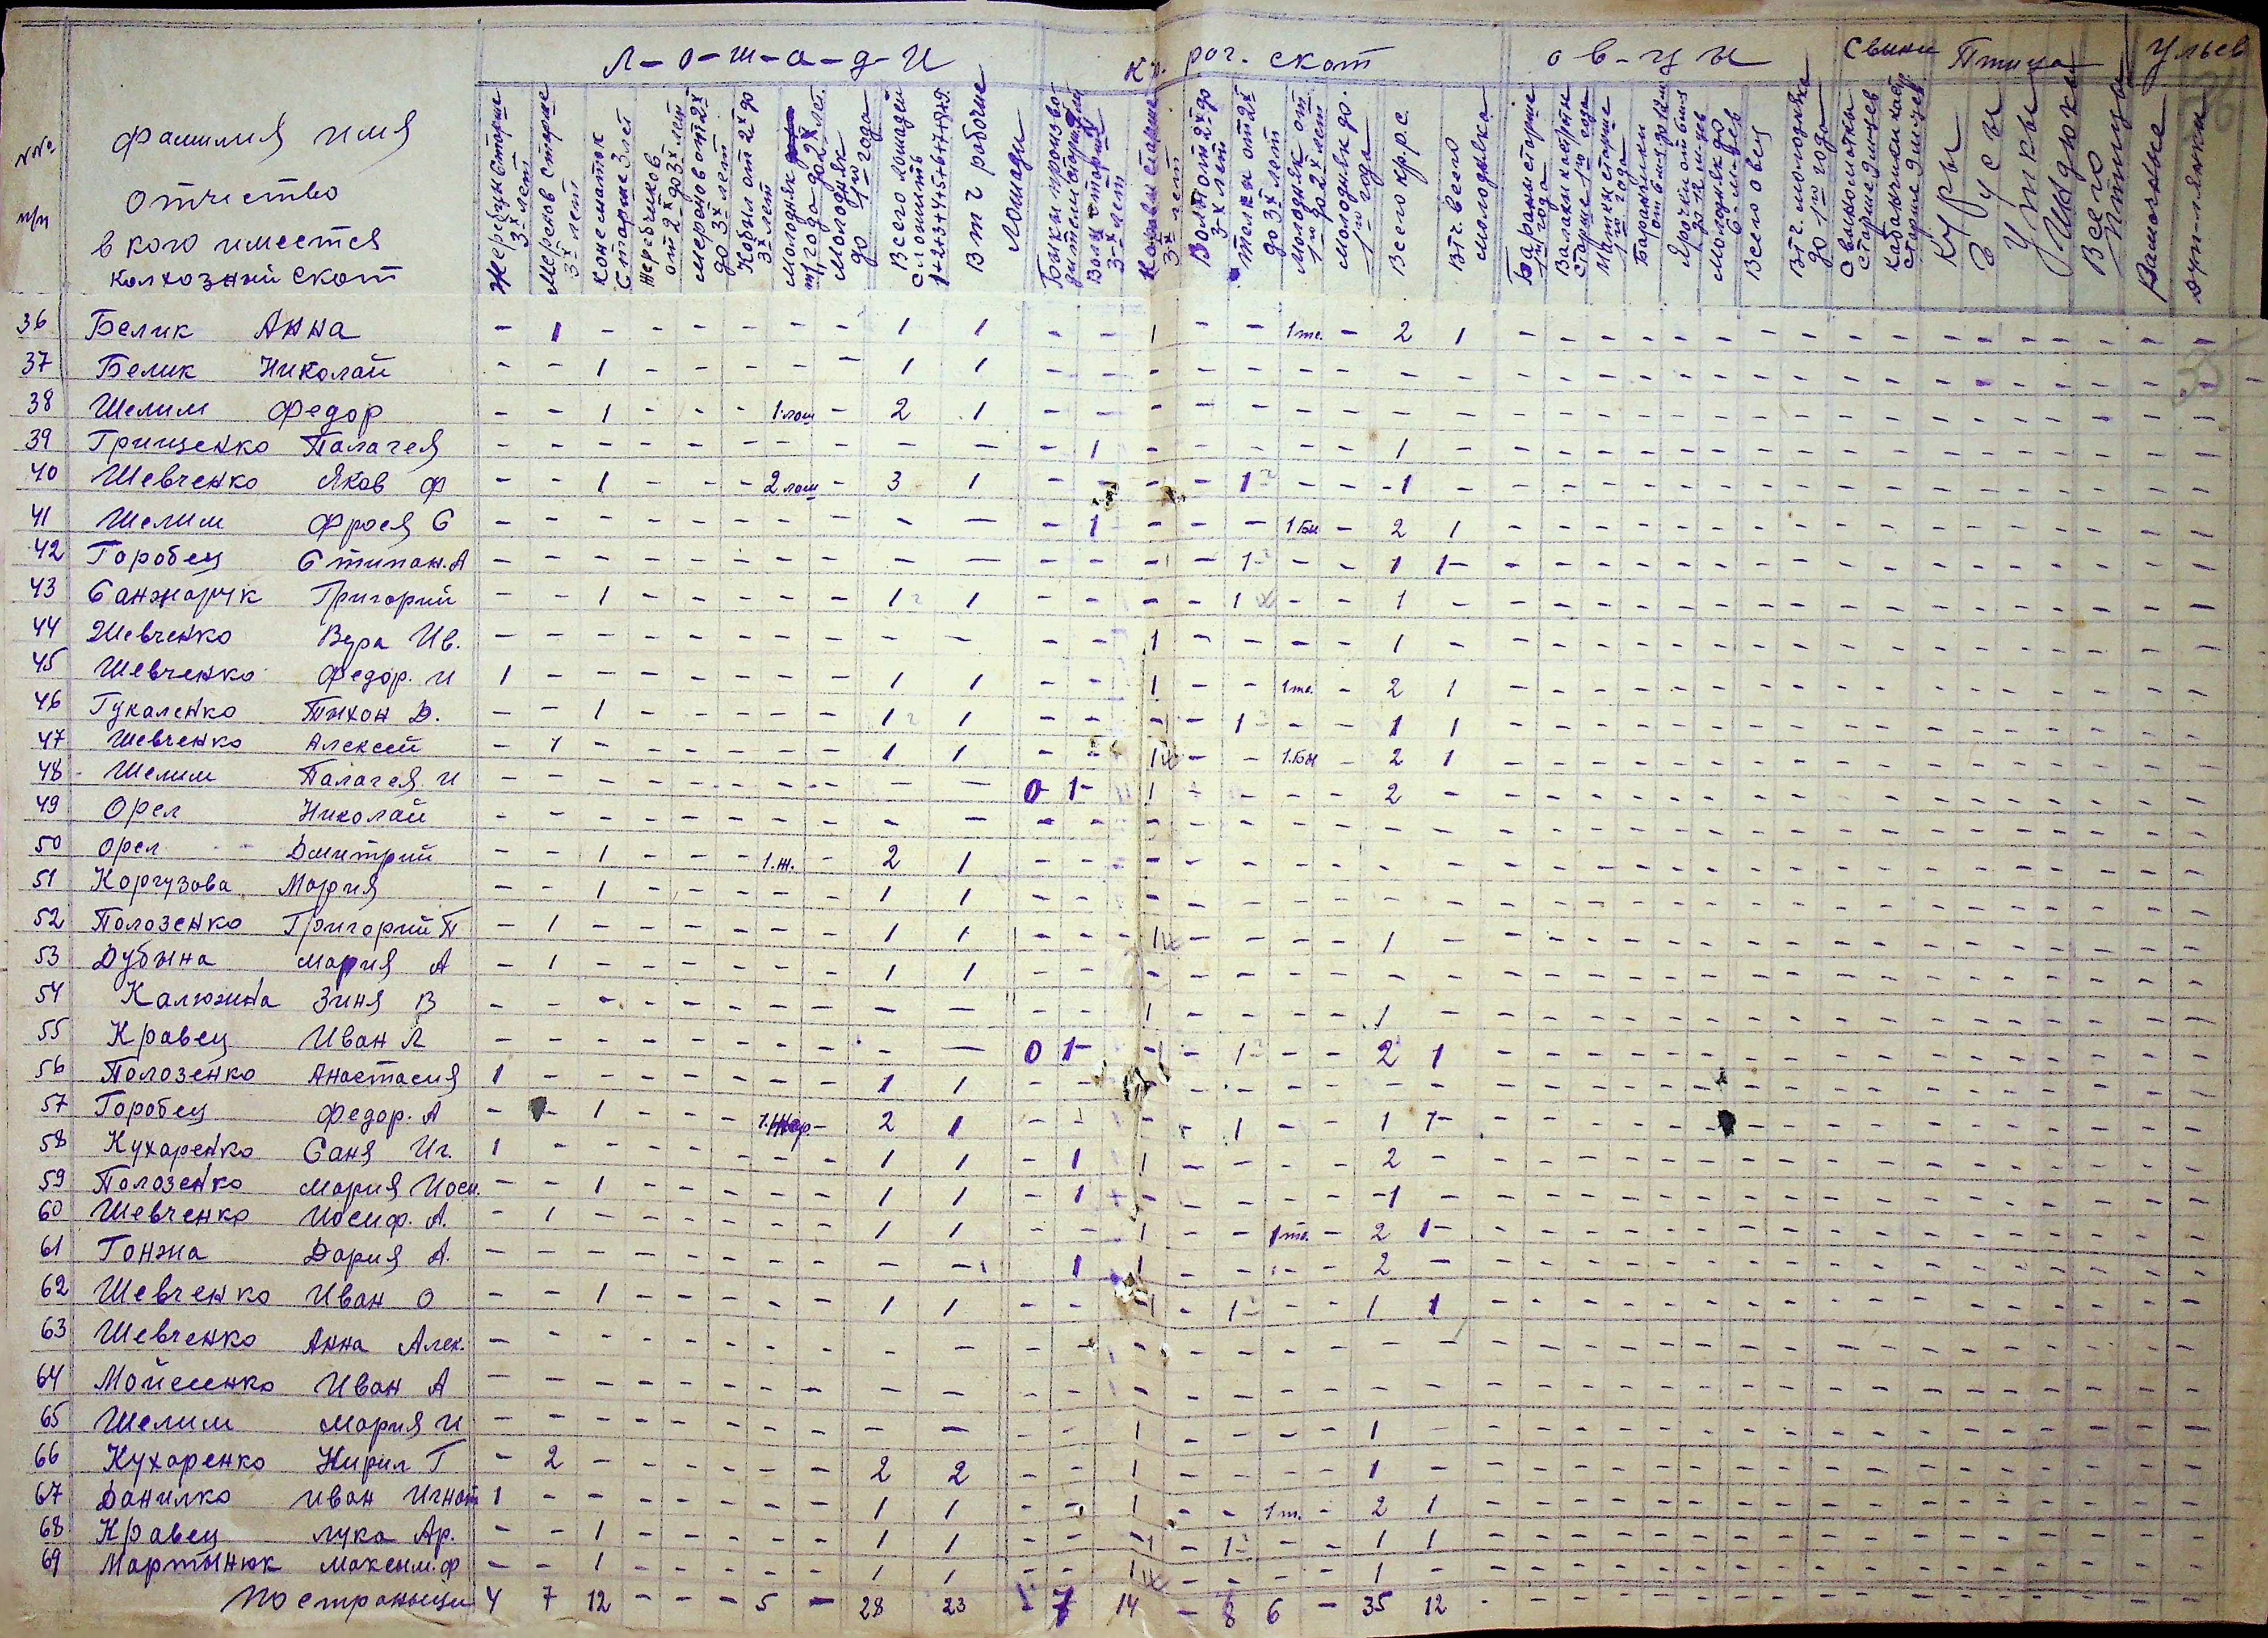 л-о-ш-а-д-и кр. рог. скот о в-ц ы Свиньи Птица Ульев
№№ п/п
Фамилия имя
Отчество
в кого имеется
колхозний скот
Жеребцы старше 3-х лет
Меренов старше 3-х лет
Конематок старше 3 лет
Жеребчиков от 2-х до 3-х лет
Меренов от 2-х до 3-х лет
Кобыл от 2-х до 3-х лет
Молодняк от 1 года до 2-х лет.
Молодняк до 1-го года
Всего лошадей с ложить 1+2+3+4+5+6+7+8
В т ч рабочие лошади
Быки производители старше
Волы старше 3-х лет
Коровы старше 3-х лет
Волы от 2-х до 3-х лет
Телки от 2-х до 3-х лет
Молодняк от 1-го до 2-х лет
Молодняк до 1-го года
Всего кр.р.с.
В т.ч всего молодняка
Бараны старше 1-го года
Валахи кастраты старше 1-го года
Матки старше 1-го года
Всего овец
В т.ч. молодняка до 1-го года
Свиноматки старше 9 м-цев
Куры
Гусы
Утки
Индюки
Всего птицы
Рамочные
Дуплянки
36 Белик Анна - 1 - - - - - - 1 1 - - 1 - - 1 те. - 2 1
37 Белик Николай - - 1 - - - - - 1 1
38 Шелим Федор - - 1 - - - 1.лош - 2 1
39 Грищенко Палагея - - - - - - - - - - - 1 - - - - - 1
40 Шевченко Яков Ф - - 1 - - - 2 лош - 3 1 - - - - 1 - - 1
41 Шелим Фрося С - - - - - - - - - - - 1 - - - 1 бы - 2 1
42 Горобец Стипан. А - - - - - - - - - - - - - - 1 - - 1 1
43 Санжарук Григорий - - 1 - - - - - 1 1 - - - - 1 - - 1
44 Шевченко Вера Ив. - - - - - - - - - - - - 1 - - - - 1
45 Шевченко Федор. И 1 - - - - - - - 1 1 - - 1 - - 1 те. - 2 1
46 Гукаленко Тихон Д. - - 1 - - - - - 1 1 - - - - 1 - - 1 1
47 Шевченко Алексей - 1 - - - - - - 1 1 - - 1 - - 1.бы - 2 1
48 Шелим Палагея. И - - - - - - - - - - 0 1 1 - - - - 2
49 Орел Николай
50 Орел Дмитрий - - 1 - - - 1.ж. - 2 1
51 Коргузова Мария - - 1 - - - - - 1 1
52 Полозенко Григорий П - 1 - - - - - - 1 1 - - 1 - - - - 1
53 Дубына Мария А - 1 - - - - - - 1 1
54 Калюжна Зиня В - - - - - - - - - - - - 1 - - - - 1
55 Кравец Иван Л - - - - - - - - - - 0 1 - - 1 - - 2 1
56 Полозенко Анастасия 1 - - - - - - - 1 1
57 Горобец Федор. А - - 1 - - - 1.жер. - 2 1 - - - - 1 - - 1 1
58 Кухаренко Саня Иг. 1 - - - - - - - 1 1 - 1 1 - - - - 2
59 Полозенко Мария Иоси. - - 1 - - - - - 1 1 - 1 - - - - - 1
60 Шевченко Иосиф. А. - 1 - - - - - - 1 1 - - 1 - - 1 те. - 2 1
61 Гонжа Дария А. - - - - - - - - - - - 1 1 - - - - 2
62 Шевченко Иван О - - 1 - - - - - 1 1 - - - - 1 - - 1 1
63 Шевченко Анна Алек.
64 Мойсеенко Иван А
65 Шелим Мария И - - - - - - - - - - - - 1 - - - - 1
66 Кухаренко Кирил Г - 2 - - - - - - 2 2 - - 1 - - - - 1
67 Данилко Иван Игнат 1 - - - - - - - 1 1 - - 1 - - 1 т. - 2 1
68 Кравец Лука Ар. - - 1 - - - - - 1 1 - - - - 1 - - 1 1
69 Мартынюк Максым. Ф - - 1 - - - - - 1 1 - - 1 - - - - 1
По страницы 4 7 12 - - - 5 - 28 23 - 7 14 - 8 6 - 35 12